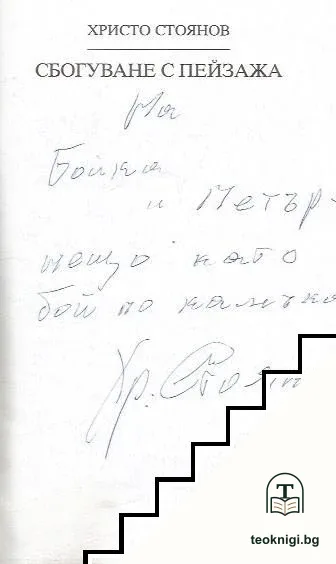 ХРИСТО СТОЯНОВ
СБОГУВАНЕ С ПЕЙЗАЖА
На
Бойка
и Петър -
нещо като
бой по
Хр. Стоян
T
teoknigi.bg